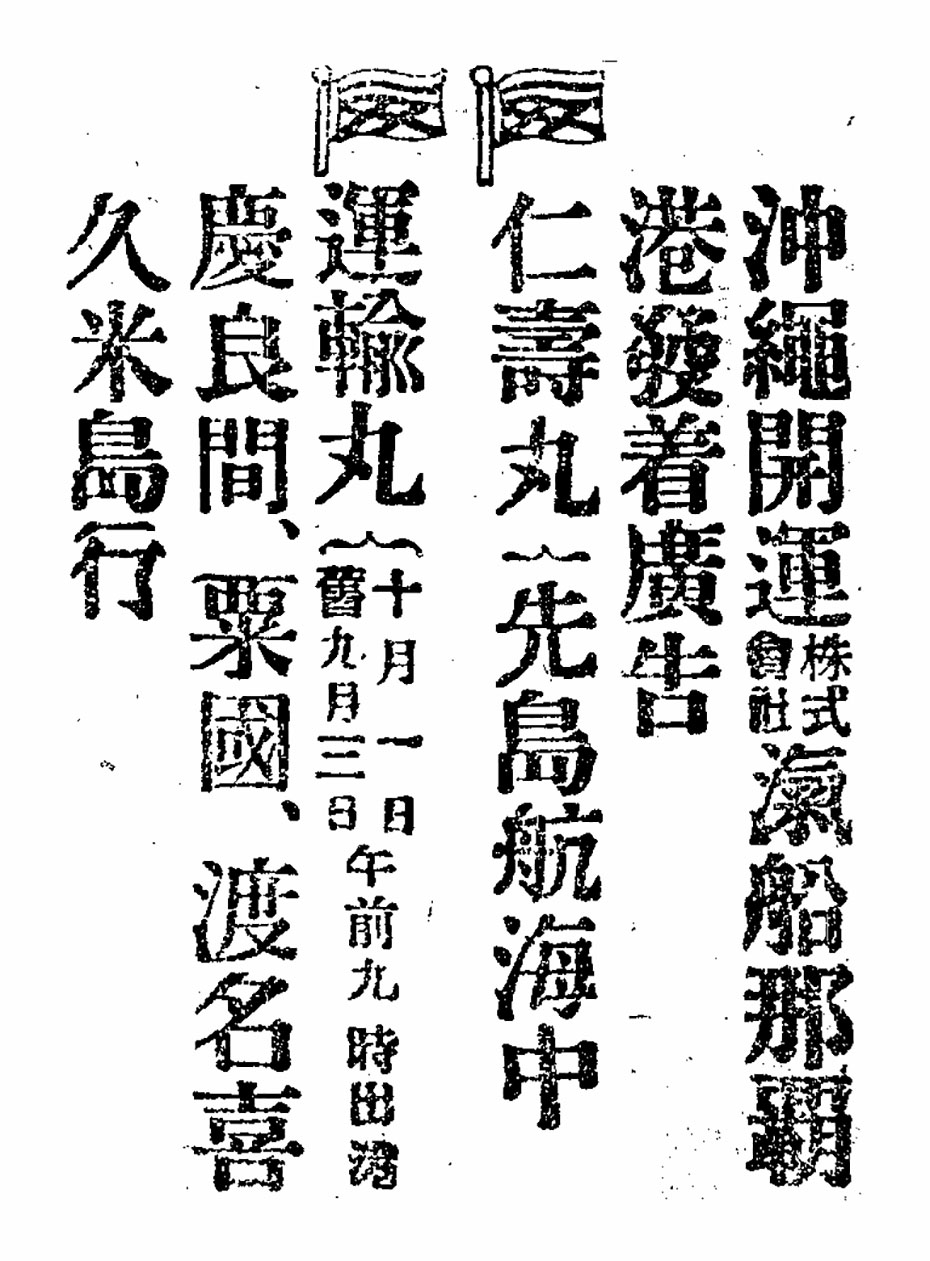 沖繩開運株式會社滊船那覇
港發着廣告
仁壽丸︷先島航海中
運輸丸︷十月一日舊九月三日午前九時出港
慶良間、粟國、渡名喜
久米島行